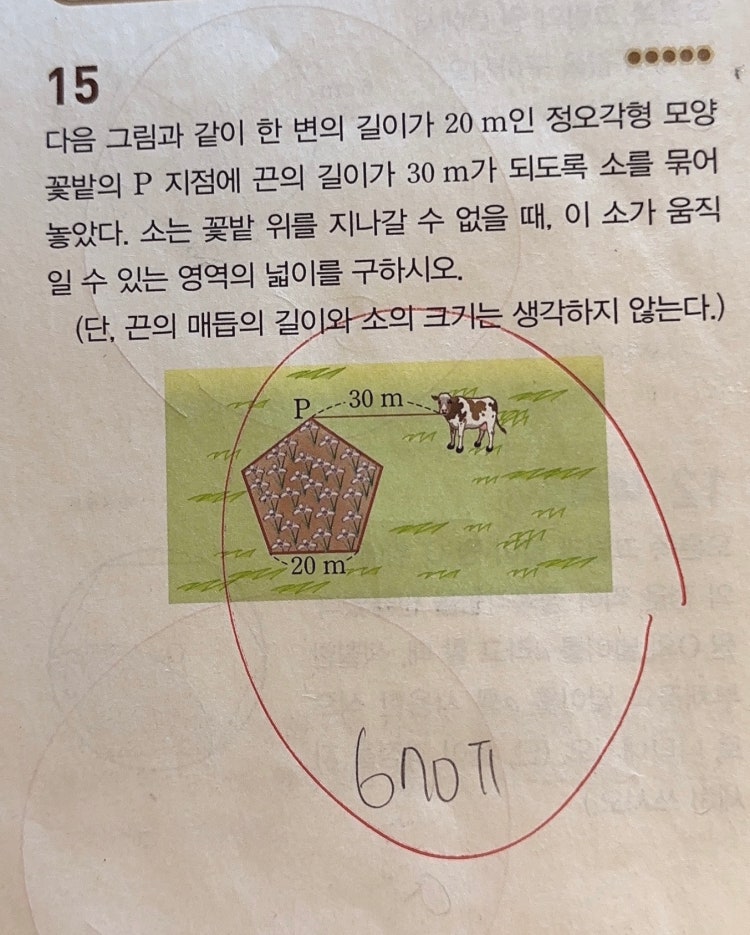 15
다음 그림과 같이 한 변의 길이가 20 m인 정오각형 모양
꽃밭의 P 지점에 끈의 길이가 30 m가 되도록 소를 묶어
놓았다. 소는 꽃밭 위를 지나갈 수 없을 때, 이 소가 움직
일 수 있는 영역의 넓이를 구하시오.
(단, 끈의 매듭의 길이와 소의 크기는 생각하지 않는다.)
P 30 m
20 m